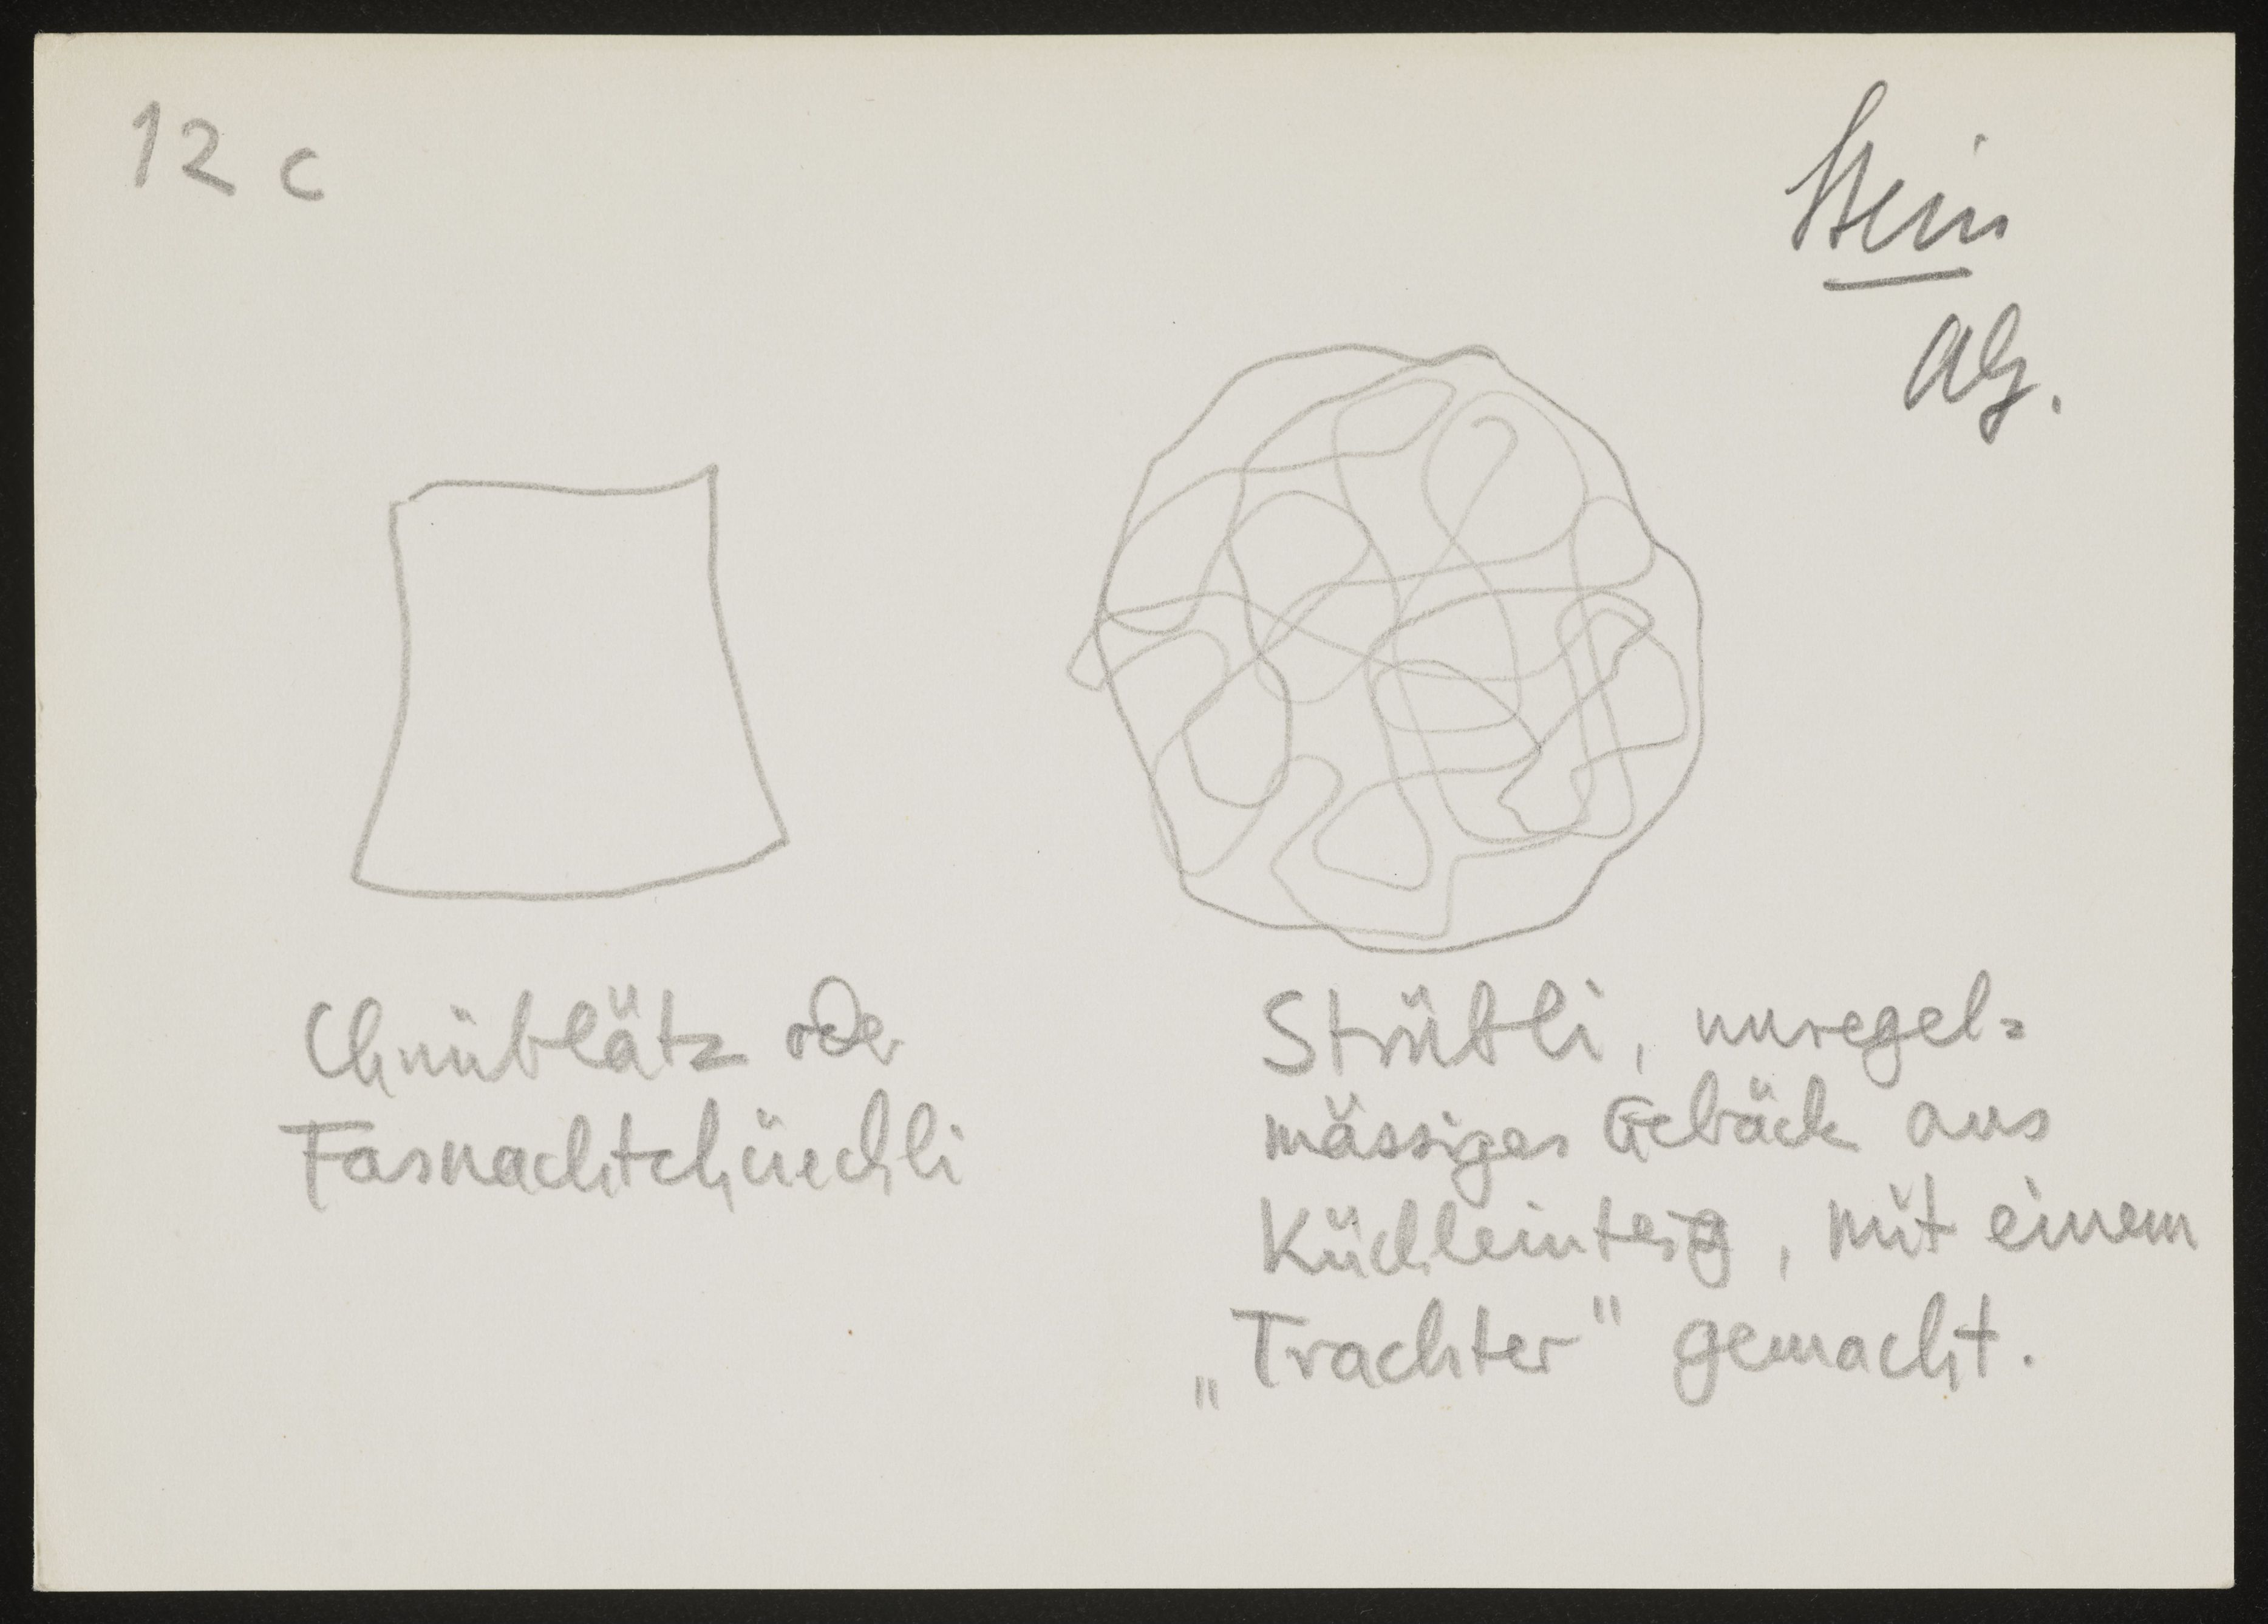 12 c
Stein
AG.
Chnüblätz oder
Fasnachtchüechli
Strübli, unregel=
mässiges Gebäck aus
Küchleinteig, mit einem
„Trachter" gemacht.